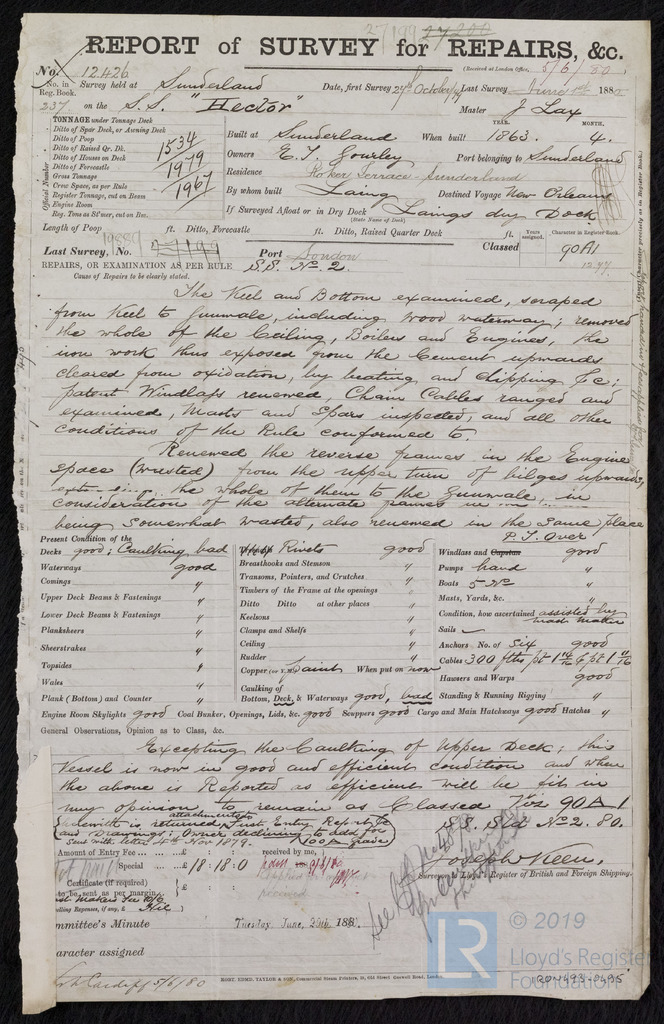 27199 27200
REPORT of SURVEY for REPAIRS, &c.
(Received at London Office, 5/6/80)
No. 12426
No. in Reg. Book. 237
Survey held at Sunderland Date, first Survey 24th October/79 Last Survey June 1st 1880
on the S.S. "Hector" Master J Lax
TONNAGE under Tonnage Deck
Ditto of Spar Deck, or Awning Deck
Ditto of Poop
Ditto of Raised Qr. Dk.
Ditto of Houses on Deck 1534
Ditto of Forecastle
Gross Tonnage 1979
Crew Space, as per Rule
Register Tonnage, cut on Beam 1967
Engine Room
Reg. Tons as St'mer, cut on Bm.
Official Number
YEAR. MONTH.
Built at Sunderland When built 1863. 4.
Owners E. T. Gourley Port belonging to Sunderland
Residence Roker Terrace Sunderland
By whom built Laing Destined Voyage New Orleans
If Surveyed Afloat or in Dry Dock Laings dry Dock
(State Name of Dock)
Length of Poop ft. Ditto, Forecastle ft. Ditto, Raised Quarter Deck ft.
Years assigned. Character in Register Book.
Last Survey, No. 27199 Port London Classed 90A1
12.77
REPAIRS, OR EXAMINATION AS PER RULE S.S. No 2.
Cause of Repairs to be clearly stated.
The Keel and Bottom examined, scraped
from Keel to Gunwale, including wood waterway; removed
the whole of the Ceiling, Boilers and Engines, the
iron work thus exposed from the Cement upwards
cleared from oxidation, by beating and chipping &c;
patent Windlass renewed, Chain Cables ranged and
examined, Masts and Spars inspected, and all other
conditions of the Rule conformed to.
Renewed the reverse frames in the Engine
space (wasted) from the upper turn of bilges upwards,
the whole of them to the Gunwale, in
consideration of the alternate frames in
being somewhat wasted, also renewed in the same place
P.T. Over
Present Condition of the
Decks good; Caulking bad
Waterways good
Comings "
Upper Deck Beams & Fastenings "
Lower Deck Beams & Fastenings "
Planksheers "
Sheerstrakes "
Topsides "
Wales "
Plank (Bottom) and Counter "
Rivets good
Breasthooks and Stemson "
Transoms, Pointers, and Crutches "
Timbers of the Frame at the openings "
Ditto Ditto at other places "
Keelsons "
Clamps and Shelfs "
Ceiling "
Rudder "
Copper (or Y.M.) Paint When put on now
Caulking of
Bottom, Deck, & Waterways good, bad
Windlass and Capstan good
Pumps hand "
Boats 5 No "
Masts, Yards, &c. "
Condition, how ascertained assisted by
Sails
Anchors No. of Six good
Cables 300 fths
Hawsers and Warps good
Standing & Running Rigging "
Engine Room Skylights good Coal Bunker, Openings, Lids, &c. good Scuppers good Cargo and Main Hatchways good Hatches "
General Observations, Opinion as to Class, &c.
Excepting the Caulking of Upper Deck; this
Vessel is now in good and efficient condition and when
the above is Reported as efficient will be fit in
my opinion to remain as Classed Viz 90A1
S.S. Sld No 2. 80.
is returned, Just Entry Report &
and Drawings; Owner declining to add for
sent with letter 4th Nov 1879. (100A grade)
Amount of Entry Fee £ : : received by me,
Special £ 18:18:0
Certificate (if required) £ : :
to be sent as per margin.
Joseph Keen,
Surveyor to Lloyd's Register of British and Foreign Shipping.
elling Expenses, if any, £ Nil
mmittee's Minute Tuesday June, 29th 188
aracter assigned
5/6/80
ROBT. EDMD. TAYLOR & SON, Commercial Steam Printers, 19, Old Street Goswell Road, London.
LR
© 2019
Lloyd's Register
Foundation
RON493-0495